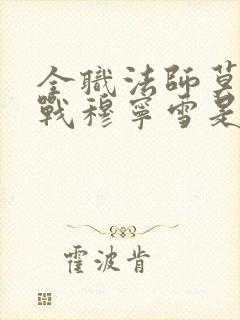 全職法師莫
戰穆寧雪是
霍波肯